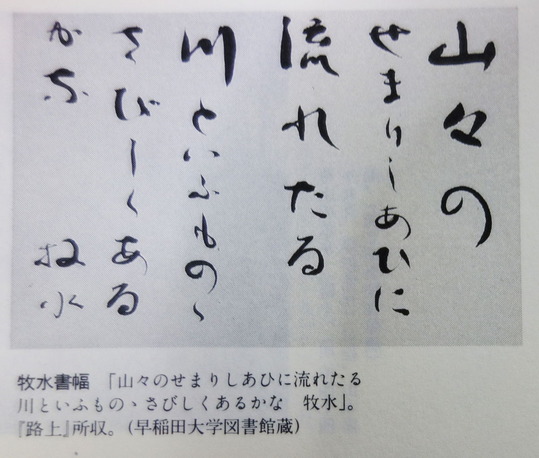 山々の
せまりしあひに
流れたる
川といふものゝ
さびしくある
かな 牧水
牧水書幅 「山々のせまりしあひに流れたる
川といふものゝさびしくあるかな 牧水」。
『路上』所収。(早稲田大学図書館蔵)